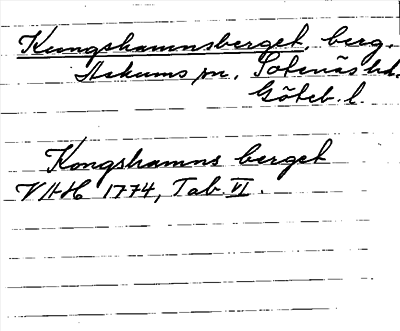 Kungshamnsberget, berg.
Askums sn, Sotenäs hd.
Göteb. l.
Kongshamns berget
VAH 1774, Tab. VI.